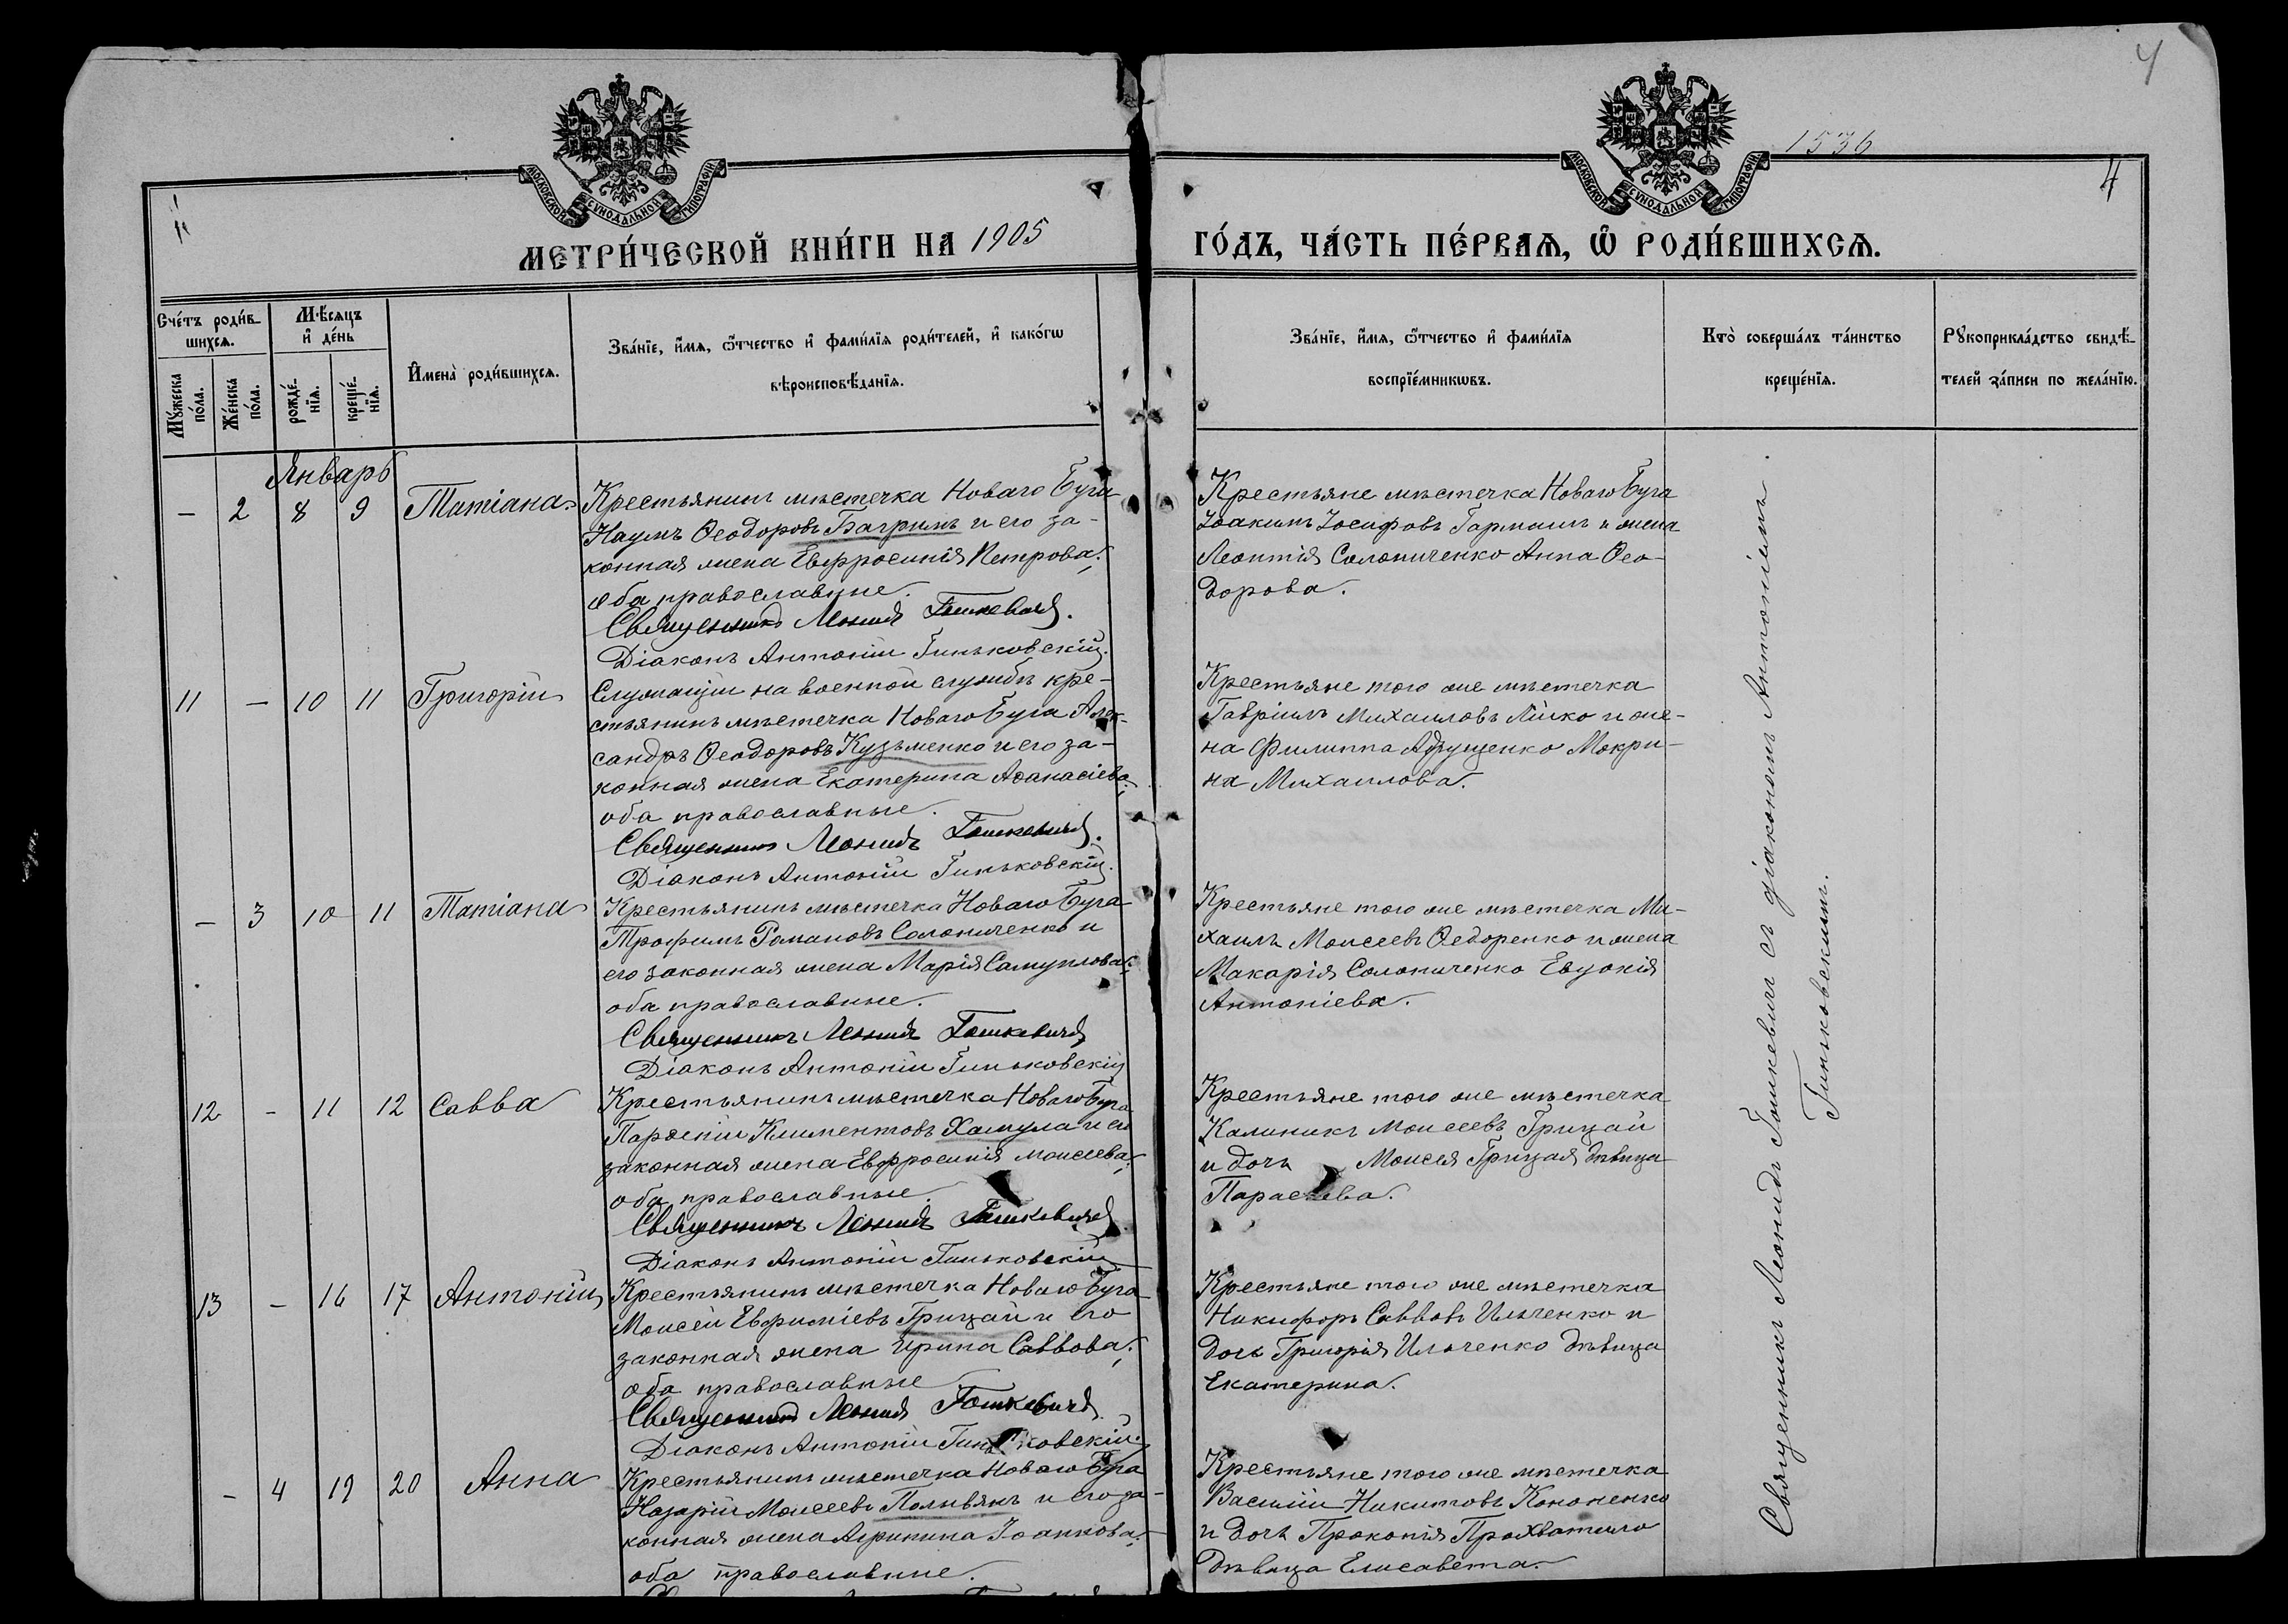 4
1536
4
МОСКОВСКОЙ СУНОДАЛЬНОЙ ТИПОГРАФІИ
МОСКОВСКОЙ СУНОДАЛЬНОЙ ТИПОГРАФІИ
МЕТРИ́ЧЕСКОЙ КНИ́ГИ НА 1905
ГО́ДЪ, ЧА́СТЬ ПЕ́РВАѦ, Ѽ РОДИ́ВШИХСѦ.
Сче́тъ роди́в-
шихсѧ.
Мꙋ́жеска
по́ла.
Же́нска
по́ла.
Мѣ́сѧцъ
и҆ де́нь
рожде́-
нїѧ.
креще́-
нїѧ.
И҆мена̀ роди́вшихсѧ.
Зва́нїе, и҆́мѧ, ѻ҆́тчество и҆ фами́лїѧ роди́телей, и҆ како́гѡ
вѣроисповѣ́данїѧ.
Зва́нїе, и҆́мѧ, ѻ҆́тчество и҆ фами́лїѧ
воспрїе́мникѡвъ.
Кто̀ соверша́лъ та́инство
креще́нїѧ.
Рꙋкоприкла́дство свидѣ́-
телей за́писи по жела́нїю.
Январь
– 2 8 9 Татіана
Крестьянинъ мѣстечка Новаго Буга
Наумъ Ѳеодоровъ Багринъ и его за-
конная жена Евфросинія Петрова;
оба православные.
Священникъ Леонидъ Гошкевичъ.
Діаконъ Антоній Гиньковскій.
Крестьяне мѣстечка Новаго Буга
Іоакимъ Іосифовъ Гармашъ и жена
Леонтія Солониченко Анна Ѳео-
дорова.
11 – 10 11 Григорій
Служащій на военной службѣ кре-
стьянинъ мѣстечка Новаго Буга Алек-
сандръ Ѳеодоровъ Кузьменко и его за-
конная жена Екатерина Аѳанасіева;
оба православные.
Священникъ Леонидъ Гошкевичъ.
Діаконъ Антоній Гиньковскій.
Крестьяне того же мѣстечка
Гавріилъ Михаиловъ и же-
на Филиппа Мокри-
на Михаилова.
– 3 10 11 Татіана
Крестьянинъ мѣстечка Новаго Буга
Трофимъ Романовъ Солониченко и
его законная жена Марія Самуилова;
оба православные.
Священникъ Леонидъ Гошкевичъ
Діаконъ Антоній Гиньковскій
Крестьяне того же мѣстечка Ми-
хаилъ Моисеевъ Ѳедоренко и жена
Макарія Солониченко Евдокія
Антоніева.
12 – 11 12 Савва
Крестьянинъ мѣстечка Новаго Буга
Парѳеній Климентовъ Хамула и его
законная жена Евфросинія Моисеева;
оба православные.
Священникъ Леонидъ Гошкевичъ
Діаконъ Антоній Гиньковскій
Крестьяне того же мѣстечка
Калиникъ Моисеевъ Грицай
и дочь Моисея Грицая дѣвица
Параскева.
13 – 16 17 Антоній
Крестьянинъ мѣстечка Новаго Буга
Моисей Евфиміевъ Грицай и его
законная жена Ирина Саввова;
оба православные
Священникъ Леонидъ Гошкевичъ
Діаконъ Антоній Гиньковскій.
Крестьяне того же мѣстечка
Никифоръ Саввовъ Ильченко и
дочь Григорія Ильченко дѣвица
Екатерина.
– 4 19 20 Анна
Крестьянинъ мѣстечка Новаго Буга
Назарій Моисеевъ Поливянъ и его за-
конная жена Агрипина Іоаннова;
оба православные.
Крестьяне того же мѣстечка
Василій Никитовъ Кононенко
и дочь Прокопія Прохватило
дѣвица Елисавета.
Священникъ Леонидъ Гошкевичъ съ діакономъ Антоніемъ
Гиньковскимъ.